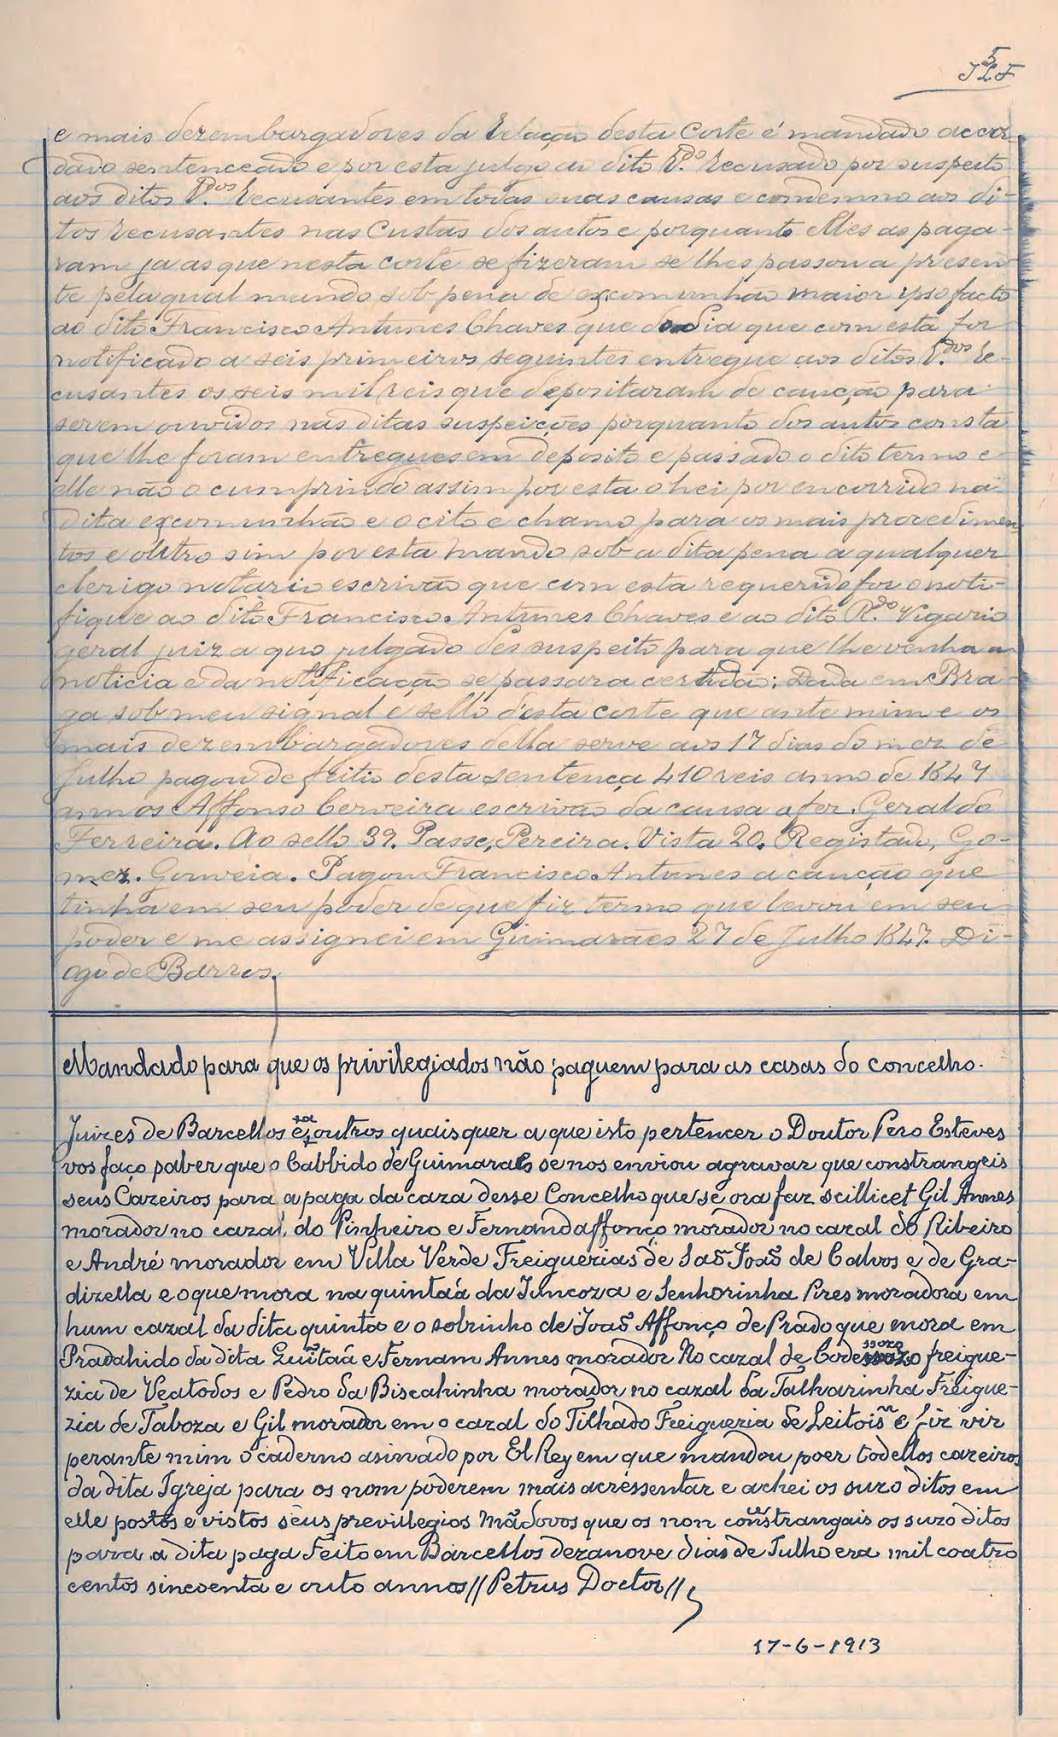 e mais dezembargadores da Relação desta Corte é mandado accor-
dado sentenceado e por esta julgo ao dito R.do Recusado por suspeito
aos ditos R.dos Recusantes em todas suas causas e condemno aos di-
tos recusantes nas Custas dos autos e porquanto elles as paga-
ram ja as que nesta corte se fizeram se lhes passou a presen-
te pela qual mando sob pena de excomunhão maior ipso facto
ao dito Francisco Antunes Chaves que do dia que com esta for
notificado a seis primeiros seguintes entregue aos ditos R.dos Re-
cusantes os seis mil reis que depositaram de caução para
serem ouvidos nas ditas suspeições porquanto dos autos consta
que lhe foram entregues em deposito e passado o dito termo e
elle não o cumprindo assim por esta o hei por encorrido na
dita excomunhão e o cito e chamo para os mais procedimen-
tos e outro sim por esta mando sob a dita pena a qualquer
clerigo notario escrivão que com esta requerido for o noti-
fique ao dito Francisco Antunes Chaves e ao dito R.do Vigario
geral juiz a quo julgado des suspeito para que lhe venha a
noticia e da notificação se passara certidão; Dada em Bra-
ga sob meu signal e sello d'esta corte que ante mim e os
mais dezembargadores della serve aos 17 dias do mez de
Julho pagou de feitio desta sentença 410 reis anno de 1647
annos Affonso Cerveira escrivão da causa a fez. Geraldo
Ferreira. Ao sello 39. Passe, Pereira. Vista 20. Registado, Go-
mez. Gouveia. Pagou Francisco Antunes a caução que
tinha em seu poder de que fiz termo que levou em seu
poder e me assignei em Guimarães 27 de Julho 1647. Di-
ogo de Barros.
Mandado para que os privilegiados não paguem para as casas do concelho.
Juizes de Barcellos e outros quaisquer a que isto pertencer o Doutor Pero Esteves
vos faço saber que o Cabbido de Guimaraes se nos enviou agravar que constrangeis
seus Cazeiros para a paga da caza desse Concelho que se ora faz scillicet Gil Annes
morador no cazal do Pinheiro e Fernandaffonço morador no cazal do Ribeiro
e André morador em Villa Verde Freiguezias de Saõ Joaõ de Calvos e de Gra-
dizella e o que mora na quintaã da Juncoza e Senhorinha Pires moradora em
hum cazal da dita quinta e o sobrinho de Joaõ Affonço de Prado que mora em
Pradahido da dita Quītaã e Fernam Annes morador no cazal de Codessozo freigue-
zia de Veatodos e Pedro da Biscahinha morador no cazal da Talharinha Freigue-
zia de Taboza e Gil morador em o cazal do Tilhado Freiguezia de Leitois e fiz vir
perante mim o caderno asinado por El Rey em que mandou poer todellos cazeiros
da dita Igreja para os nom poderem mais acressentar e achei os suzo ditos em
elle postos e vistos seus previllegios Mãdovos que os non constrangais os suzo ditos
para a dita paga Feito em Barcellos dezanove dias de Julho era mil coatro
centos sincoenta e outo annos // Petrus Doctor //
17-6-1913